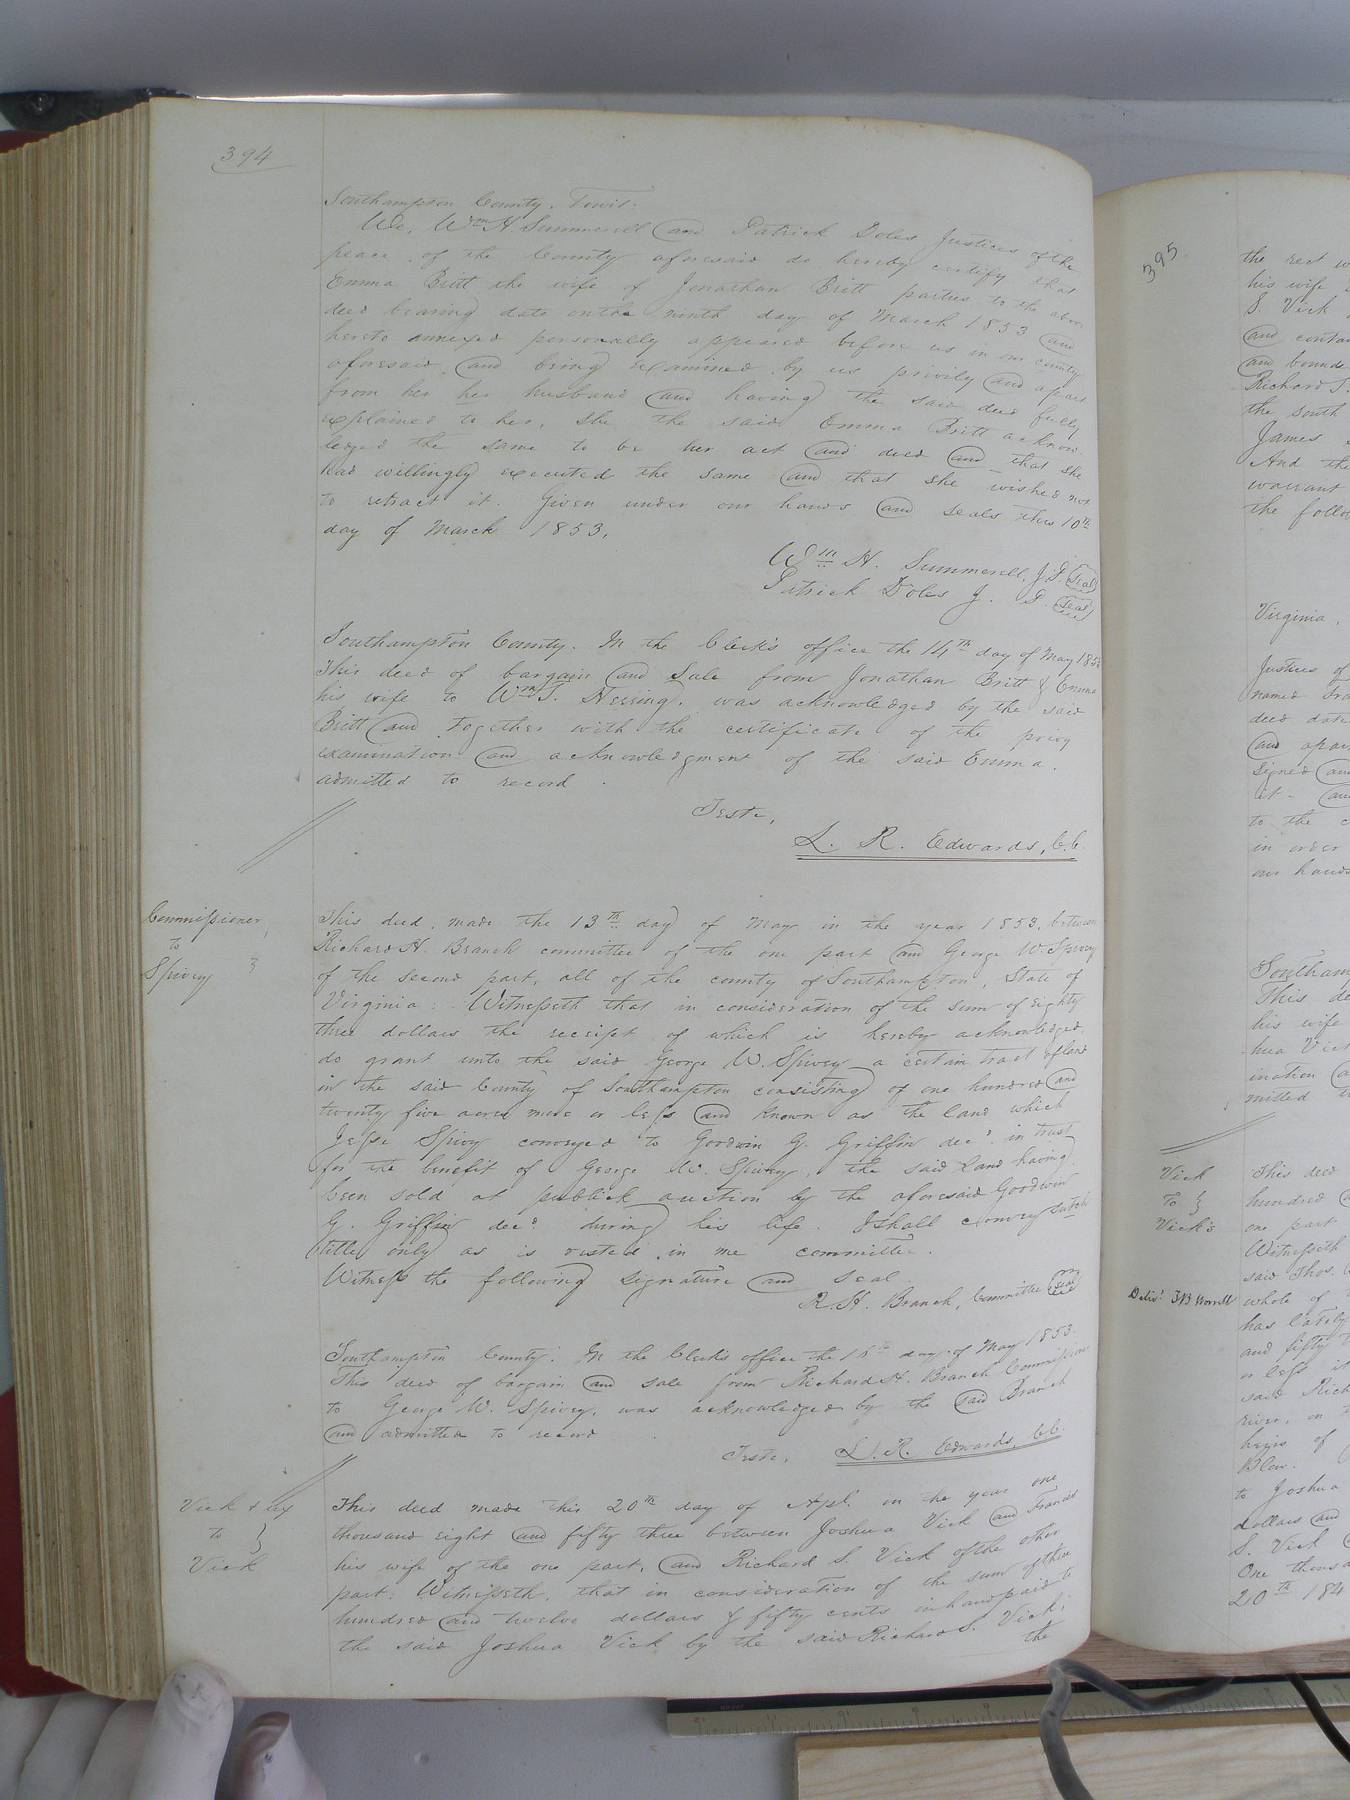 394
Southampton County, Towit:
We, Wm H Summerell and Patrick Doles Justices of the
peace of the County aforesaid do hereby certify that
Emma Britt the wife of Jonathan Britt parties to the above
deed bearing date on the ninth day of March 1853 and
hereto annexed personally appeared before us in our county
aforesaid, and being examined by us privily and apart
from her her husband and having the said deed fully
explained to her, she the said Emma Britt acknow-
ledged the same to be her act and deed and that she
had willingly executed the same and that she wished not
to retract it. Given under our hands and seals this 10th
day of March 1853.
Wm H. Summerell, J.P. Seal
Patrick Doles J. P. Seal
Southampton County. In the Clerk's office the 14th day of May 1853
This deed of bargain and Sale from Jonathan Britt & Emma
his wife to Wm J. Herring, was acknowledged by the said
Britt and together with the certificate of the privy
examination and acknowledgment of the said Emma.
admitted to record.
Teste,
L. R. Edwards, C.C.
Commissioner,
to
Spivey }
This deed, made the 13th day of May in the year 1853, between
Richard H. Branch committee of the one part and George W. Spivey
of the second part, all of the county of Southampton, State of
Virginia: Witnesseth that in consideration of the sum of eighty
three dollars the receipt of which is hereby acknowledged
do grant unto the said George W. Spivey a certain tract of land
in the said County of Southampton consisting of one hundred and
twenty five acres more or less and known as the land which
Jesse Spivy conveyed to Goodwin G. Griffin decd. in trust
for the benefit of George W. Spivey, the said Land having
been sold at publick auction by the aforesaid Goodwin
G. Griffin decd during his life. I shall convey sutch
title only as is vested in me committee.
Witness the following signature and seal
R. H. Branch, Committee Seal
Southampton County. In the Clerk's office the day of May 1853.
This deed of bargain and sale from Richard H. Branch Commissioner
to George W. Spivey, was acknowledged by the said Branch
and admitted to record.
Teste, L. R. Edwards, C.C.
Vick & ux
to }
Vick
This deed made this 20th day of Apl. in the year one
thousand eight and fifty three between Joshua Vick and Frances
his wife of the one part, and Richard S. Vick of the other
part: Witnesseth, that in consideration of the sum of three
hundred and twelve dollars & fifty cents in hand paid to
the said Joshua Vick by the said Richard S. Vick;
the
395
the rest
his wife
S. Vick
and
and bounde
Richard S.
the south
James
And the
warrant
the follo
Virginia,
Justices of
named Fra
deed date
and apar
signed and
it - and
to the
in order
our hands
Southam
This de
his wife
hua Vick
ination
mitted t
Vick
To }
Vick's
This deed
hundred
one part
Witnesseth
said Thos.
whole of
has lately
and fifty
or less
said Rich
river, on
heirs of
Blow.
to Joshua
dollars and
S. Vick
One thousa
20th 184